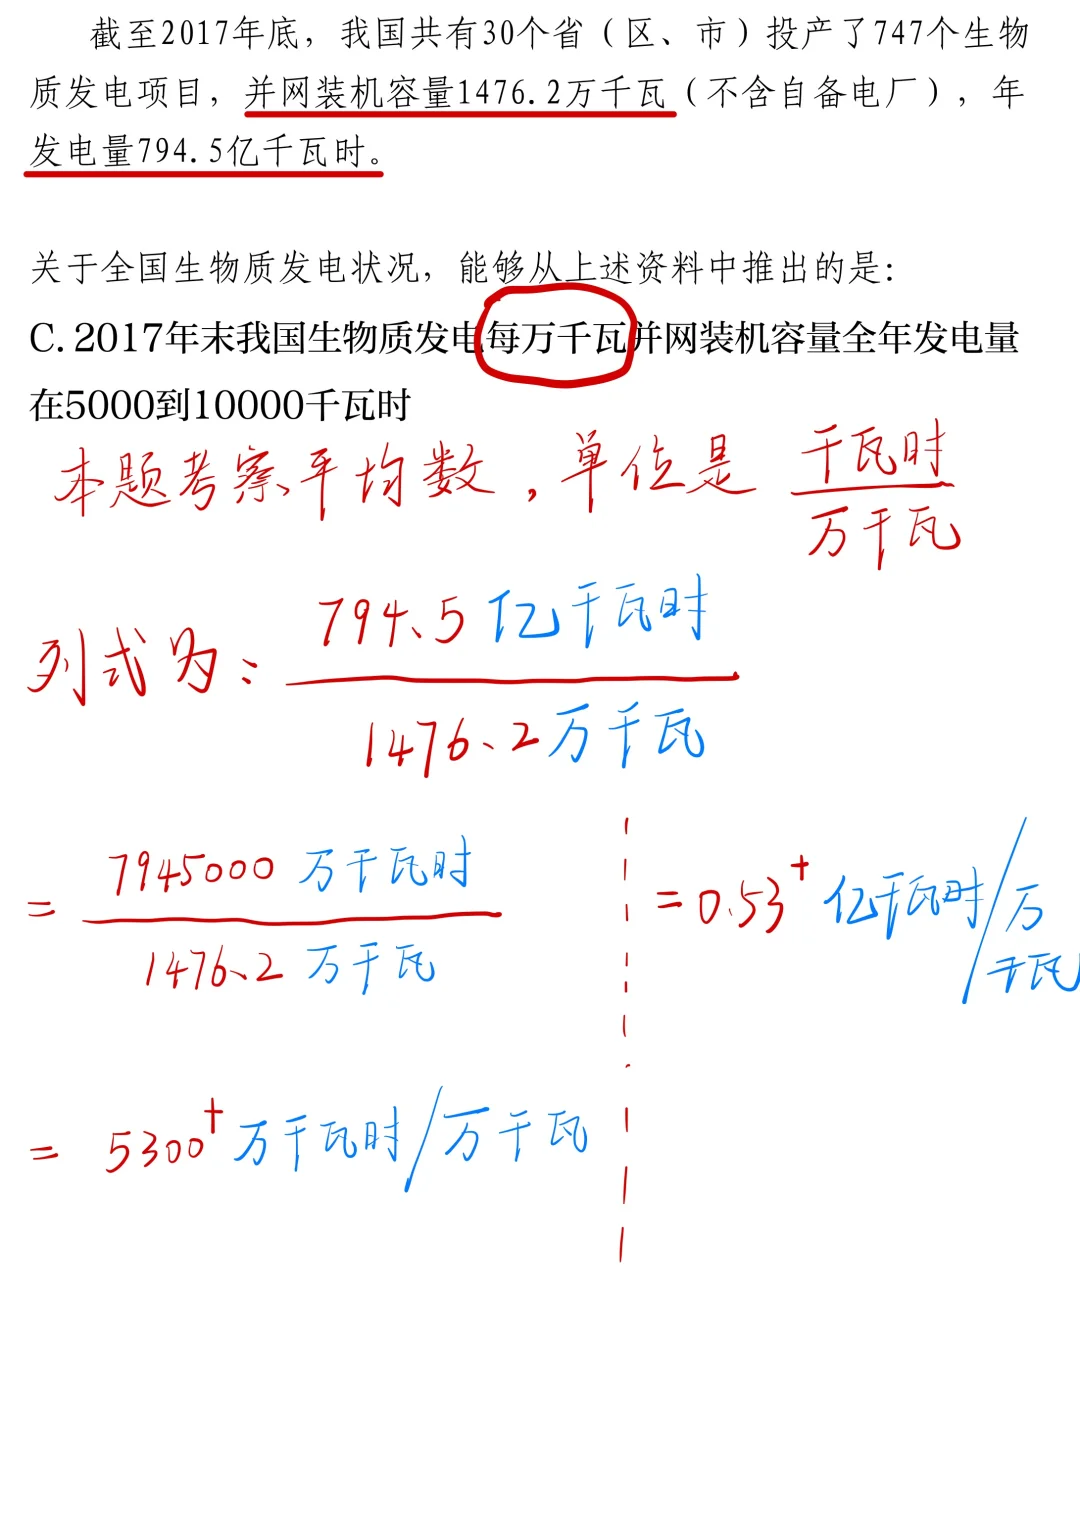 截至2017年底，我国共有30个省（区、市）投产了747个生物
质发电项目，并网装机容量1476.2万千瓦（不含自备电厂），年
发电量794.5亿千瓦时。
关于全国生物质发电状况，能够从上述资料中推出的是：
C. 2017年末我国生物质发电每万千瓦并网装机容量全年发电量
在5000到10000千瓦时
本题考察平均数，单位是 千瓦时
万千瓦
列式为： 794.5亿千瓦时
1476.2万千瓦
= 7945000 万千瓦时
1476.2 万千瓦
= 0.53⁺ 亿千瓦时/万
千瓦
= 5300⁺ 万千瓦时/万千瓦